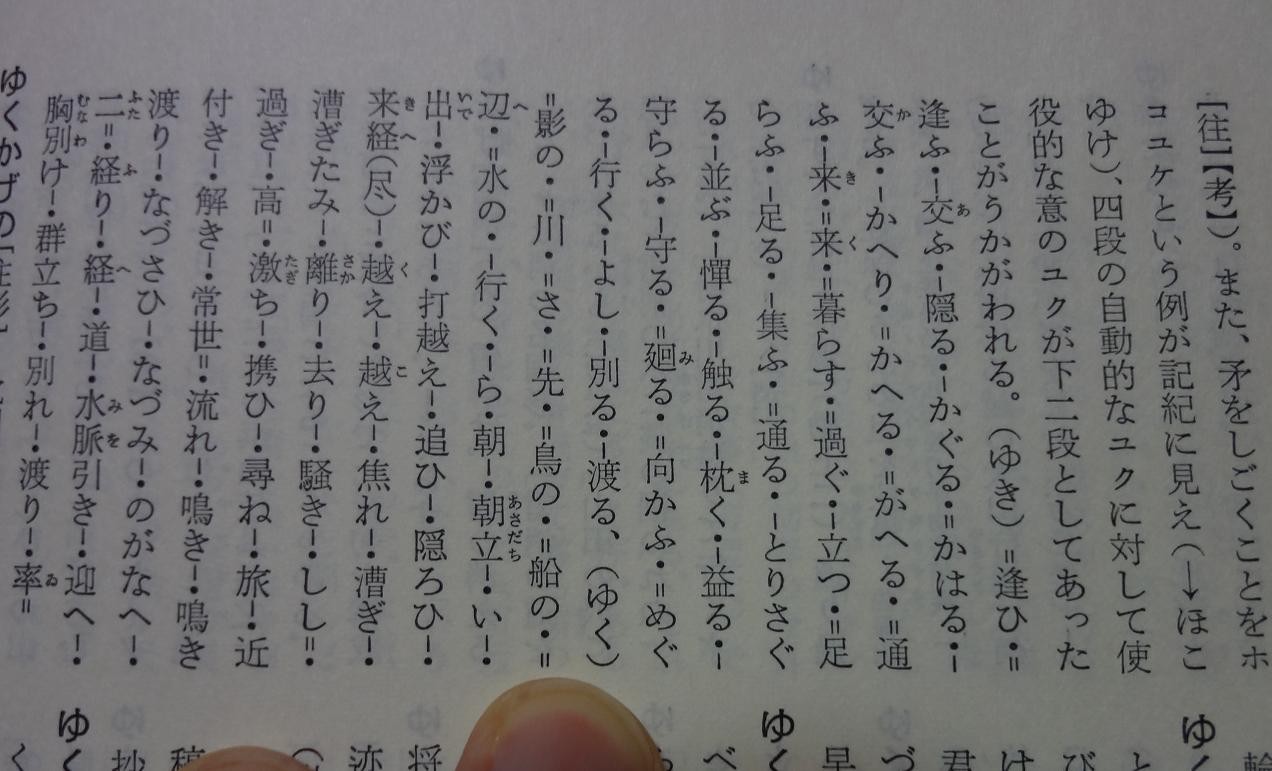 ［往］【考】）。また、矛をしごくことをホ
コユケという例が記紀に見え（→ほこ
ゆけ）、四段の自動的なユクに対して使
役的な意のユクが下二段としてあった
ことがうかがわれる。（ゆき）＝逢ひ・＝
逢ふ・交ふ・―隠る・―かぐる・＝かはる・―
交ふ・―かへり・＝かへる・＝がへる・＝通
ふ・―来・＝来・＝暮らす・＝過ぐ・―立つ・＝足
らふ・―足る・―集ふ・＝通る・―とりさぐ
る・―並ぶ・―憚る・―触る・―枕く・―益る・―
守らふ・―守る・＝廻る・＝向かふ・＝めぐ
る・―行く・―よし・―別る・―渡る、（ゆく）
＝影の・＝川・＝さ・＝先・＝鳥の・＝船の・＝
辺・＝水の・―行く・―ら・朝―・朝立―・い―・
出―・浮かび―・打越え―・追ひ―・隠ろひ―・
来経（尽）―・越え―・越え―・焦れ―・漕ぎ―・
漕ぎたみ―・離り―・去り―・騒き―・しし＝・
過ぎ―・高＝・激ち―・携ひ―・尋ね―・旅―・近
付き―・解き―・常世＝・流れ―・鳴き―・鳴き
渡り―・なづさひ―・なづみ―・のがなへ―・
二＝・経り―・経―・道―・水脈引き―・迎へ―・
胸別け―・群立ち―・別れ―・渡り―・率＝
ゆくかげの